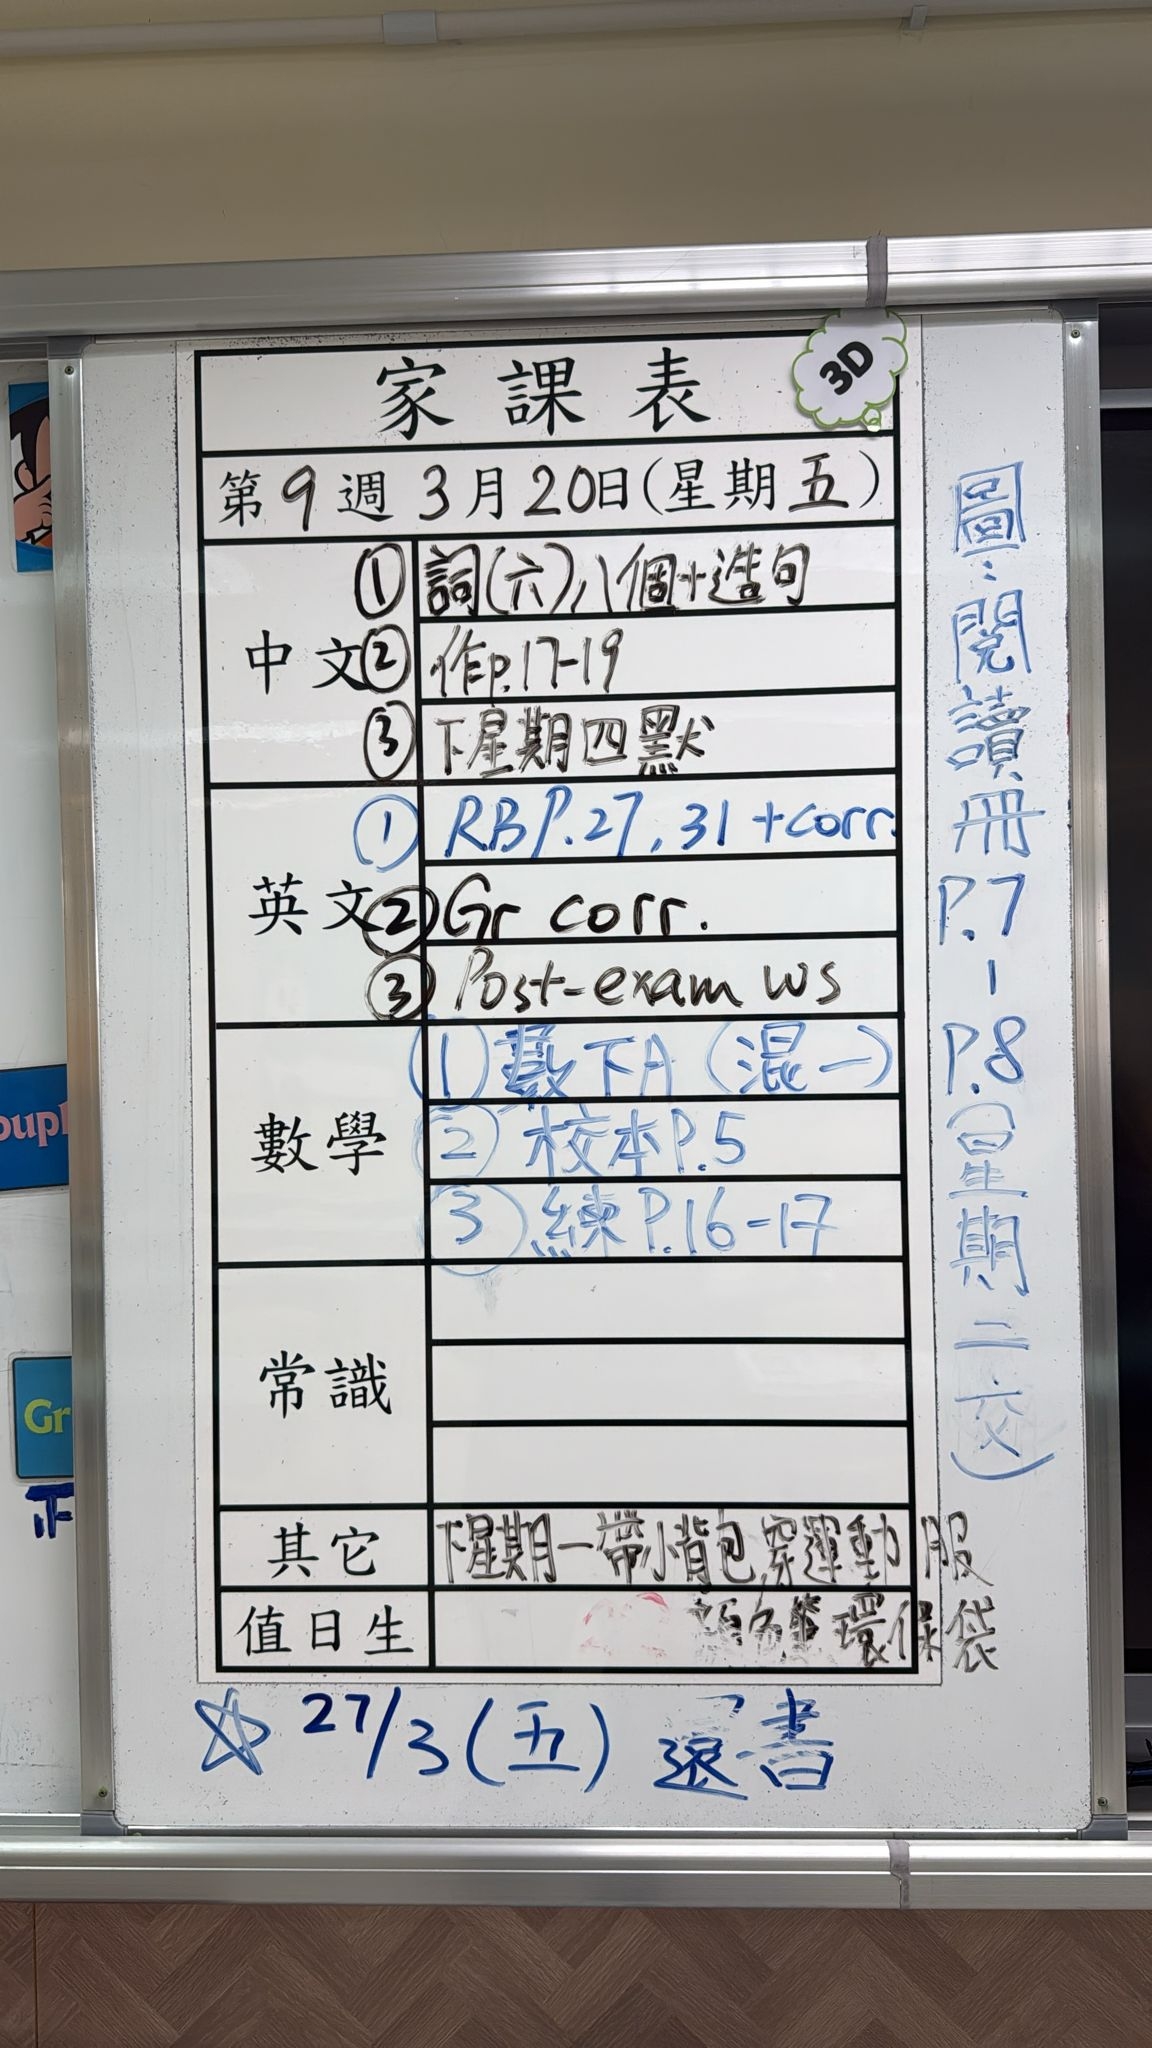 家課表
3D
第9週3月20日(星期五)
中文
① 詞(六)八個+造句
② 作p.17-19
③ 下星期四默
英文
① RB P.27, 31 +corr.
② Gr corr.
③ Post-exam WS
數學
(1) 數下A (混一)
② 校本P.5
③ 練P.16-17
常識
其它
下星期一帶小背包,穿運動服
值日生
環保袋
☆ 27/3(五) 還書
圖:閱讀冊P.7-P.8(星期二交)
Gr
正